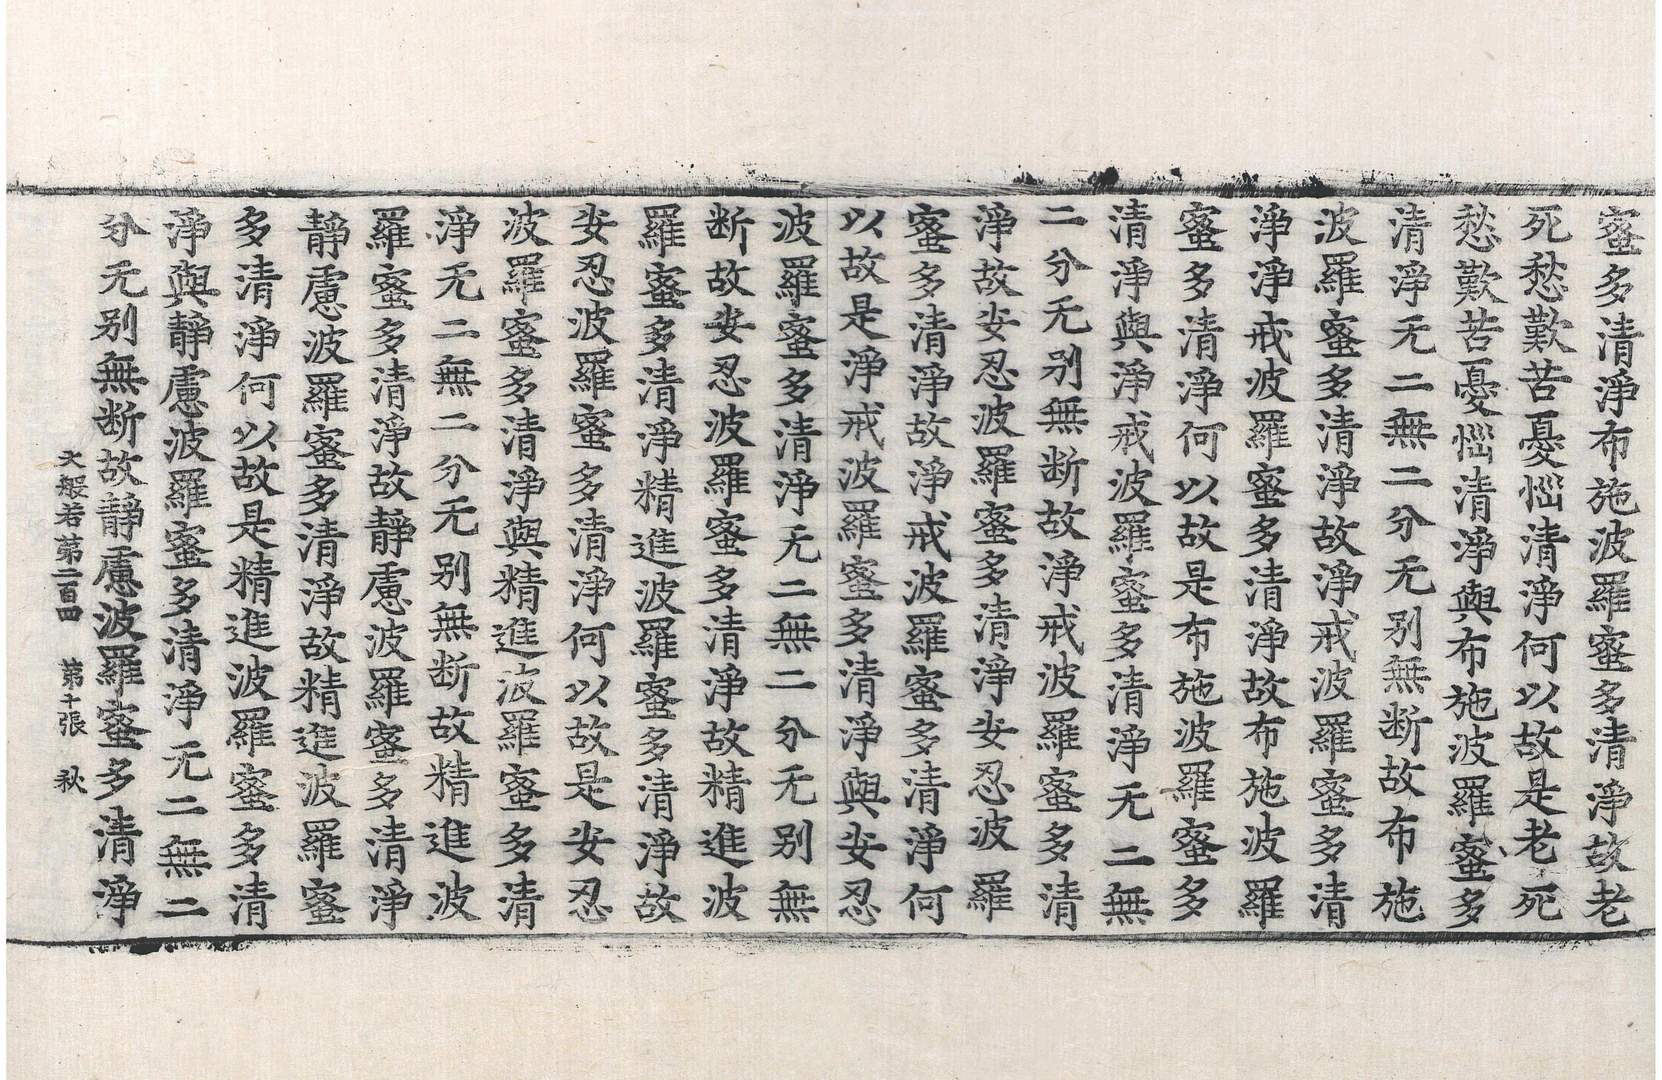 蜜多清淨布施波羅蜜多清淨故老
死愁歎苦憂惱清淨何以故是老死
愁歎苦憂惱清淨與布施波羅蜜多
清淨无二無二分无别無断故布施
波羅蜜多清淨故淨戒波羅蜜多清
淨淨戒波羅蜜多清淨故布施波羅
蜜多清淨何以故是布施波羅蜜多
清淨與淨戒波羅蜜多清淨无二無
二分无别無断故淨戒波羅蜜多清
淨故安忍波羅蜜多清淨安忍波羅
蜜多清淨故淨戒波羅蜜多清淨何
以故是淨戒波羅蜜多清淨與安忍
波羅蜜多清淨无二無二分无别無
断故安忍波羅蜜多清淨故精進波
羅蜜多清淨精進波羅蜜多清淨故
安忍波羅蜜多清淨何以故是安忍
波羅蜜多清淨與精進波羅蜜多清
淨无二無二分无别無断故精進波
羅蜜多清淨故靜慮波羅蜜多清淨
靜慮波羅蜜多清淨故精進波羅蜜
多清淨何以故是精進波羅蜜多清
淨與靜慮波羅蜜多清淨无二無二
分无别無断故靜慮波羅蜜多清淨
大般若第二百四　第十張　秋